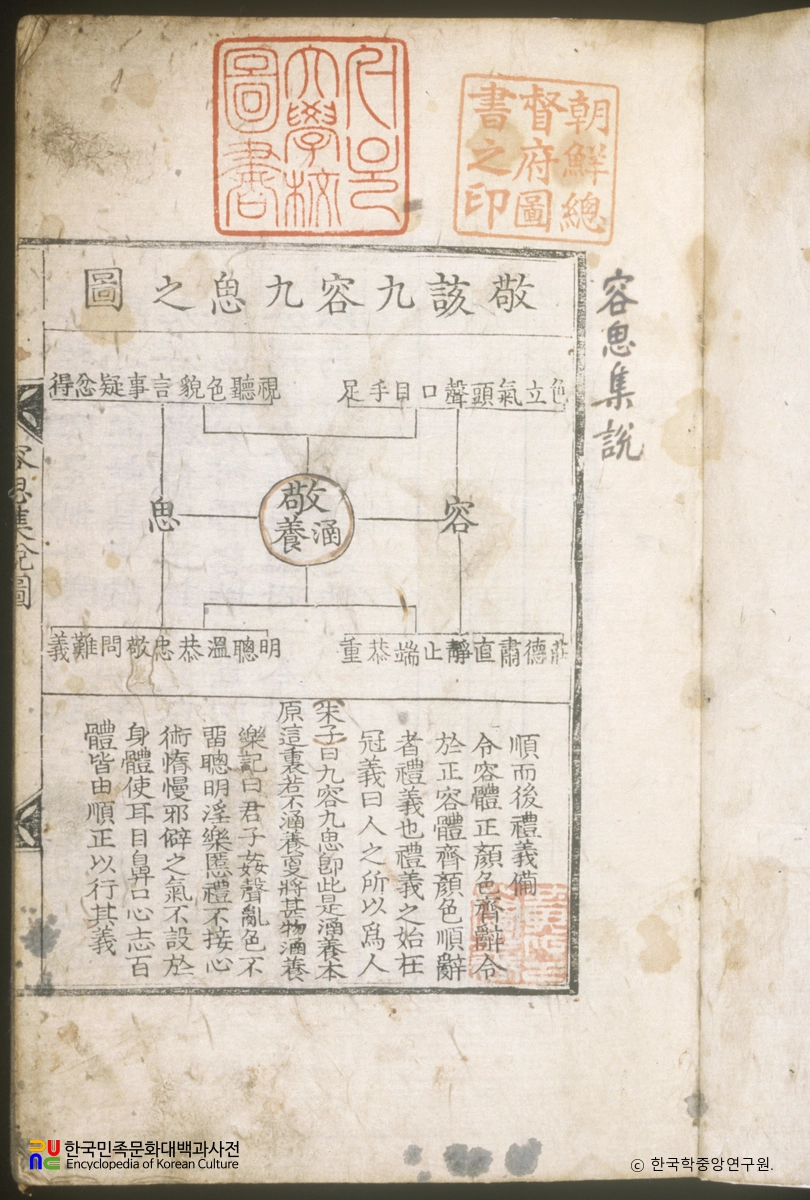 서울
大學校
圖書
朝鮮總
督府圖
書之印
容思集說
敬該九容九思之圖
色立氣頭聲口目手足
視聽色貌言事疑忿得
容
敬
涵養
思
莊德肅直靜止端恭重
明聰溫恭忠敬問難義
冠義曰人之所以爲人
者禮義也禮義之始在
於正容體齊顔色順辭
令容體正顔色齊辭令
順而後禮義備
朱子曰九容九思卽此是涵養本
原這裏若不涵養更將甚物涵養
樂記曰君子姦聲亂色不
留聰明淫樂慝禮不接心
術惰慢邪僻之氣不設於
身體使耳目鼻口心志百
體皆由順正以行其義
容思集說圖
한국민족문화대백과사전
Encyclopedia of Korean Culture
ⓒ 한국학중앙연구원.